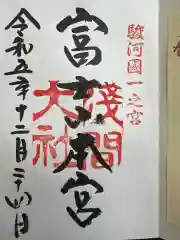 駿河國一之宮
富士本宮
淺間大社
令和五年十二月二十四日